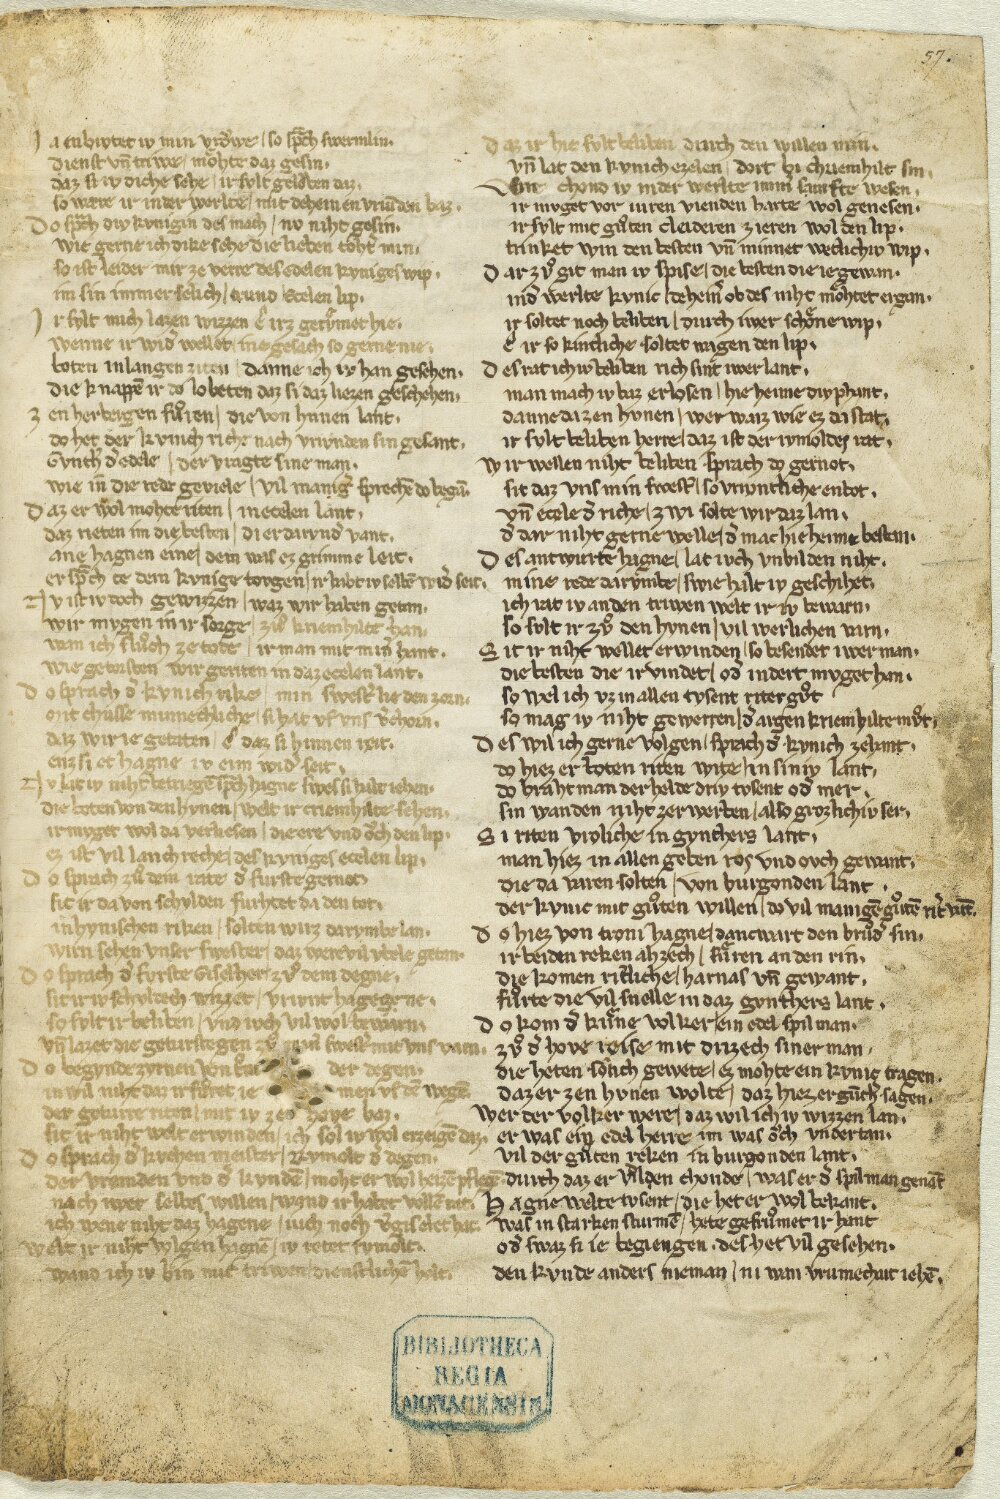 57.
I a enbivtet iv min vrowe / so sprch swermlin.
dienst vñ triwe / mohte daz gesin.
daz si iv diche sehe / ir svlt gelovben daz.
so were ir in der werlte / mit deheinen vrivden baz.
D o sprach div kvnigin des mach / nv niht gesin.
wie gerne ich dike sehe die lieben toht min.
so ist leider mir ze verre des edelen kvniges wip.
im sin immer selich / vund Etzelen lip.
I r svlt mich lazen wizzen e irz gervmet hie.
wenne ir wider wellet / ine gesach so gerne nie.
boten in langen ziten / danne ich iv han gesehen.
die knappē ir do lobeten daz si daz liezen geschehen.
Z en herbergen fvren / die von hvnen lant.
do het der kvnich riche nach vrivnden sin gesant.
Gvnth d' edele / der vragte sine man.
wie in die rede geviele / vil manig sprechē do began.
D az er wol mohte riten / in etcelen lant.
daz rieten im die besten / die er darvnd' vant.
ane hagnen eine / dem was ez grimme leit.
er sprch ze dem kvnige tovgen / ir habt iv selbē wid' seit.
N v ist iv doch gewizzen / waz wir haben getan.
wir mvgen in ir sorge / zv kriemhilte han.
wan ich slvch ze tode / ir man mit min' hant.
wie getorsten wir geriten in daz ecelen lant.
D o sprach d' kvnich rike / min swest' lie den zorn.
mit chusse minnechliche / si hat vf vns v'chorn.
daz wir ie getaten / e daz si hinnen reit.
enz si et hagne iv eim wid' seit.
N v lat iv niht betriegē sprch hagne swes si hilt iehen.
die boten von den hvnen / welt ir criemhilte sehen.
ir mvget wol da verliesen / die ere vnd och den lip.
ez ist vil lanch reche / des kvniges ecelen lip.
D o sprach zv dem rate d' furste gernot
sit ir da von schvlden furhtet da den tot.
in hvnischen riken / solten wirz darvmbe lan.
wirn sehen vnser swester / daz were vil vbele getan.
D o sprach d' fvrste Giselher / zv dem degne.
sit ir iv schvldech wizzet / vriunt hagene
so svlt ir beliben / vnd ivch vil wol bewarn.
vñ lazet die getvrstegen zv min swest' mit vns varn.
D o begvnde zvrnen von der degen.
in wil niht daz ir fvret ie men vf dē wegē
der getvrre riten / mit iv ze hove baz.
sit ir niht welt erwinden / ich sol iv wol erzeigē daz.
D o sprach d' kvchen meister / Rvmolt d' degen.
der vremden vnd d' kvndē / moht er wol heizē pflegē
nach iwer selbes willen / wand ir habet vollē rat.
ich wene niht daz hagene / iuch noch v'giselet hat.
Welt ir niht volgen hagnē / iv retet rvmolt.
wand ich iv bin mit triwen / dienstlichē holt.
D az ir hie svlt beliben durch den willen min.
vñ lat den kvnich ezelen / dort bi chriemhilt sin.
wie chond iv in der werlte imm samfte wesen.
ir mvget vor iuren vienden harte wol genesen.
ir svlt mit gvten cleideren zieren wol den lip.
trinket win den besten vñ minnet weclichiv wip.
D ar zv git man iv spise / die besten die ie gewan.
in d' werlte kvnic / deheinr ob des niht mohtet ergan.
ir soltet noch beliben / durch iwer schone wip.
e ir so kintliche soltet wagen den lip.
D es rat ich iv beliben rich sint iwer lant.
man mach iv baz erlosen / hie heime div phant.
danne da zen hvnen / wer waiz wie ez da stat.
ir svlt beliben herre / daz ist der rvmoldes rat.
W ir wellen niht beliben sprach do gernot.
sit daz vns min swest' / so vrivntliche enbot.
vñ ecele d' riche / zwi solte wir daz lan.
d' dar niht gerne welle / d' mac hie heime bestan.
D es antwurte hagne / lat ivch vnbilden niht.
mine rede darvmbe / swie halt iv geschihet.
ich rat iv an den triwen welt ir iv bewarn.
so svlt ir zv den hvnen / vil werlichen varn.
S it ir niht wellet erwinden / so besendet iwer man.
die besten die ir vindet / od' indert mvget han.
so wel ich vz in allen tvsent riter gvt
so mag iv niht gewerren / d' argen kriemhilte mvt.
D es wil ich gerne volgen / sprach d' kvnich zehant.
do hiez er boten riten wite / in siniv lant.
do braht man der helde driv tvsent od' mer.
sin wanden niht zerwerben / also grozlichiv ser.
S i riten vroliche in gvnthers lant.
man hiez in allen geben ros vnd ovch gewant.
die da varen solten / von burgonden lant.
der kvnic mit gvten willen / do vil manigē gvtē rit' vant.
D o hiez von troni hagne / dancwart den brvd' sin.
ir beiden reken ahzech / fvren an den rin.
die komen ritliche / harnas vñ gewant.
fvrte die vil snelle in daz gvnthers lant.
D o kom d' kvne volker / ein edel spilman.
zv d' hove reise mit drizech siner man.
die heten solich gewete / ez mohte ein kvnic tragen.
daz er zen hvnen wolte / daz hiez er gvnth' sagen.
Wer der volker were / daz wil ich iv wizzen lan.
er was ein edel herre im was och vndertan.
vil der gvten reken in burgonden lant.
durch daz er vidlen chonde / was er d' spilman genāt
H agne welte tvsent / die het er wol bekant.
was in starken stvrmē / hete gefrvmet ir hant
od' swaz si ie begiengen. des het vil gesehen.
den kvnde anders nieman / ni wan vrumecheit iehē.
BIBLIOTHECA
REGIA
MONACENSIS.